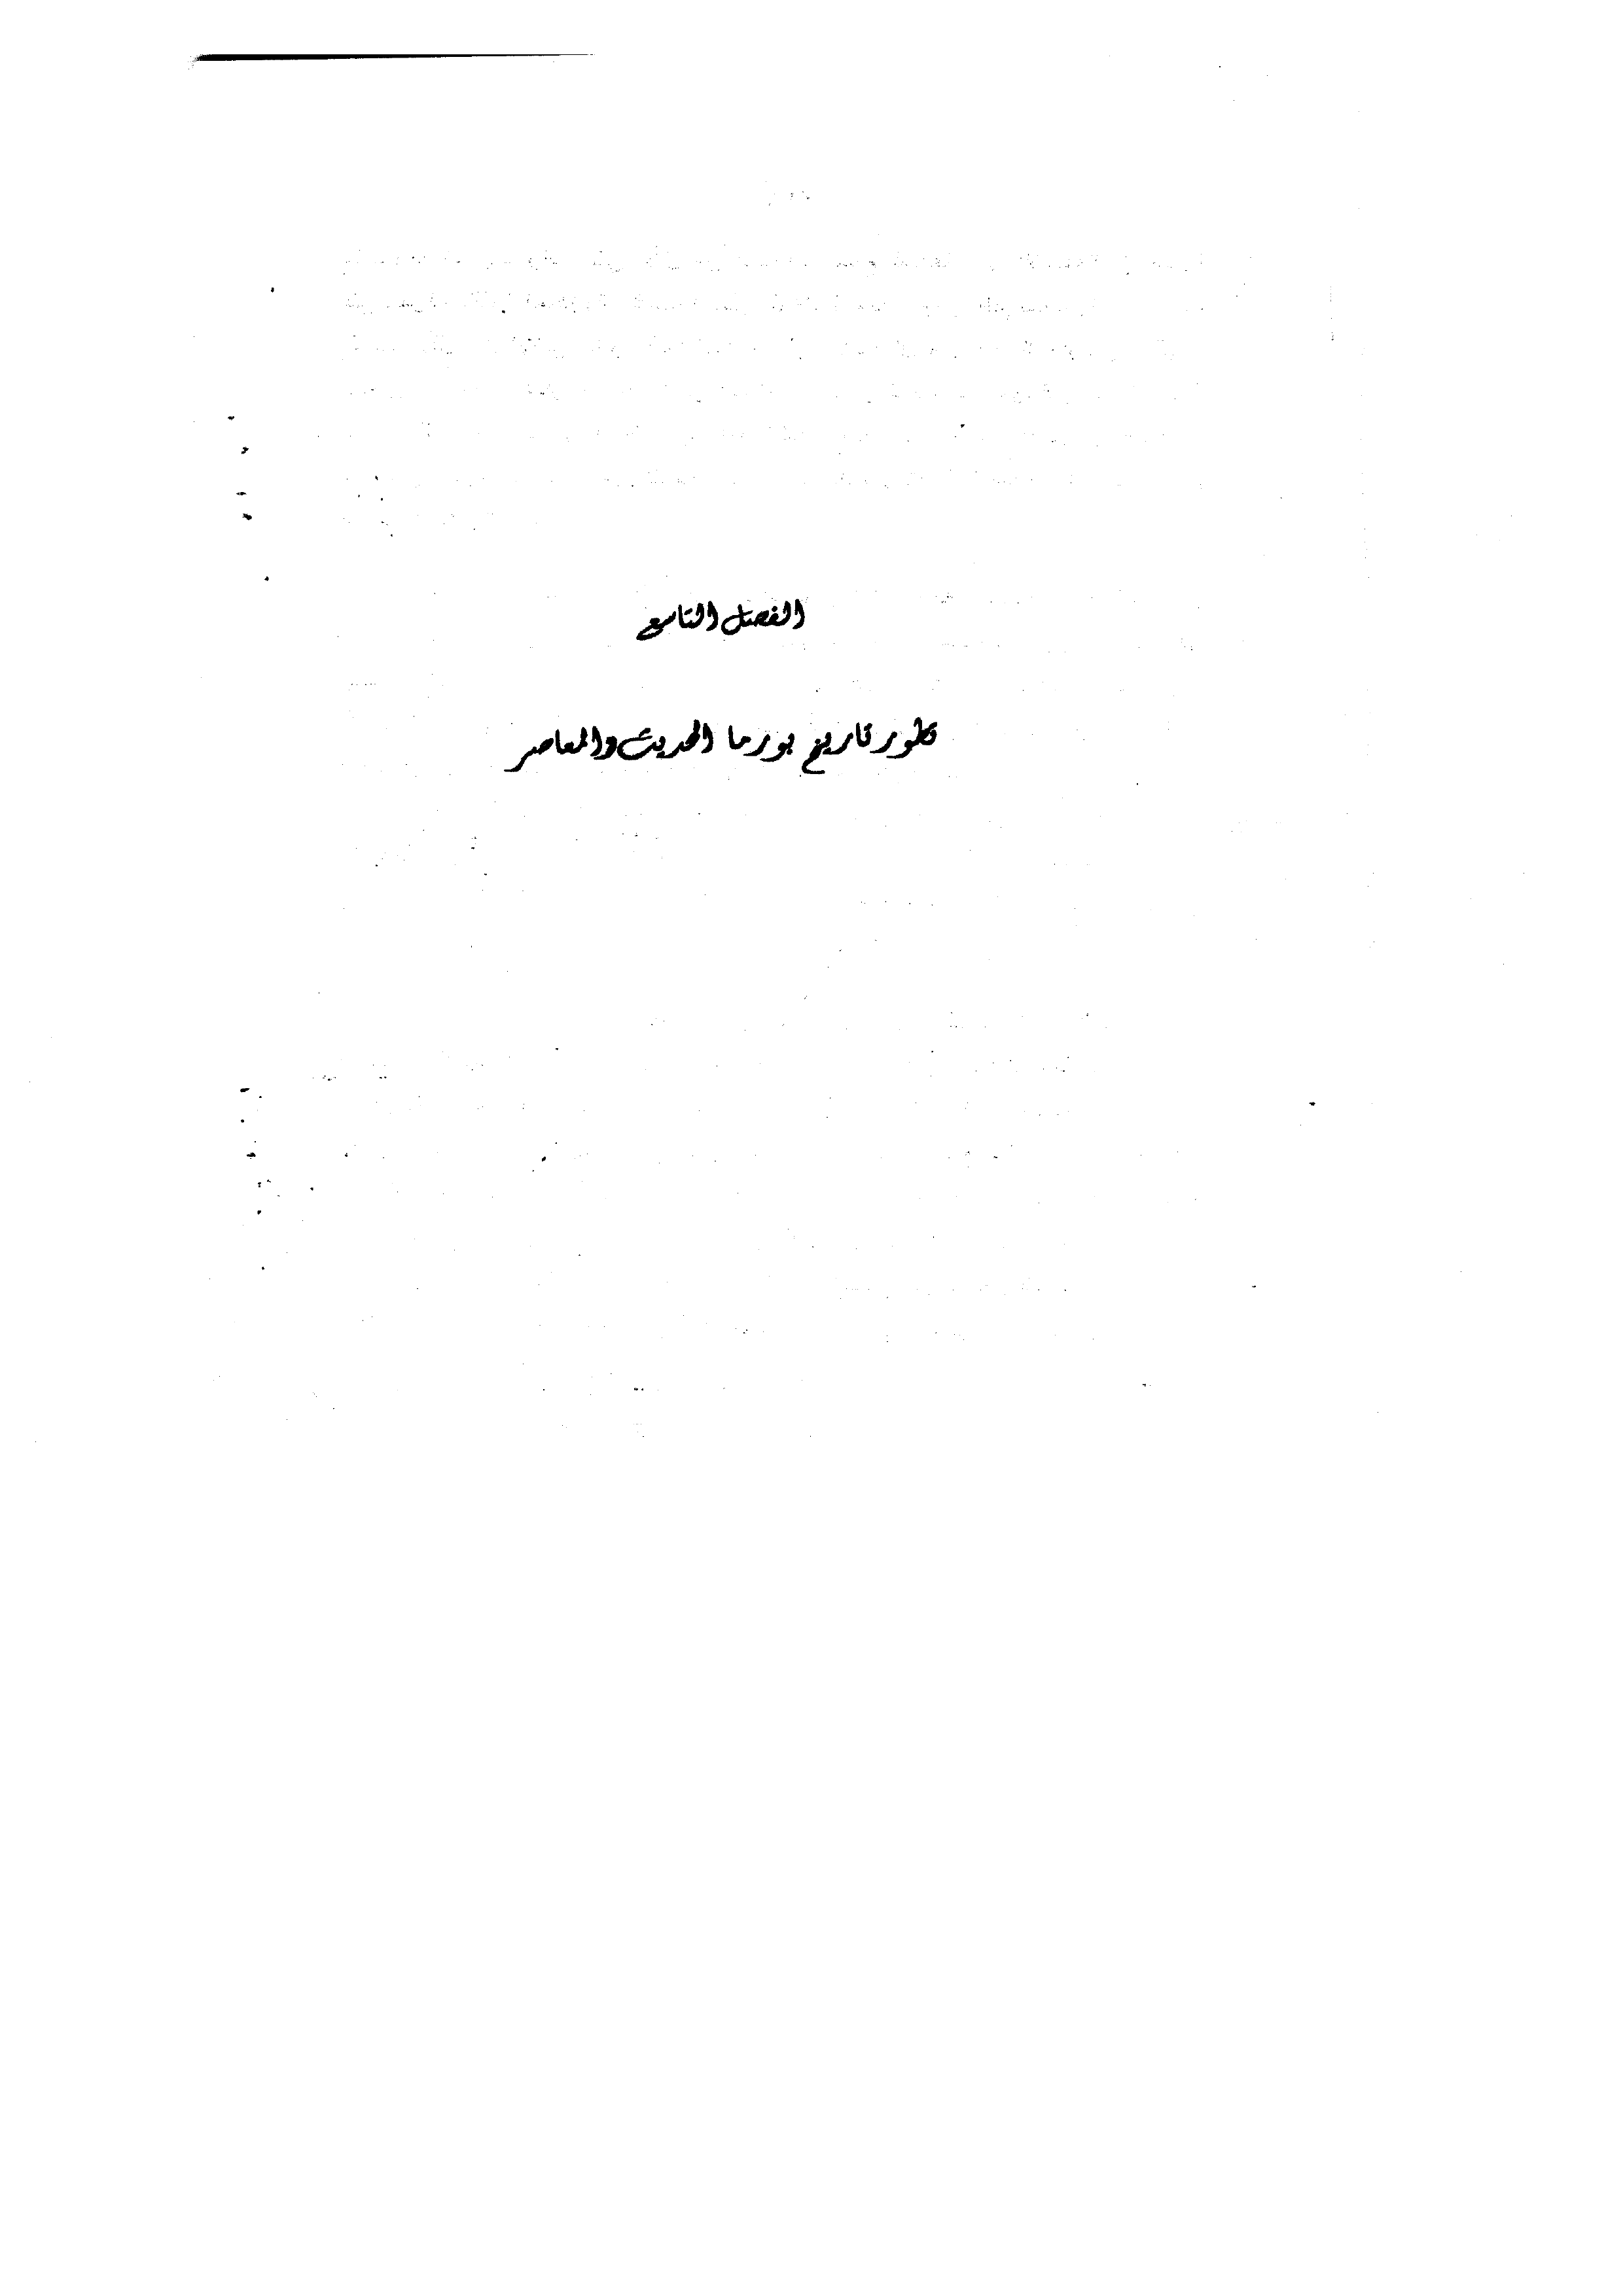 الفصل التاسع
تطور تاريخ بورما الحديث والمعاصر